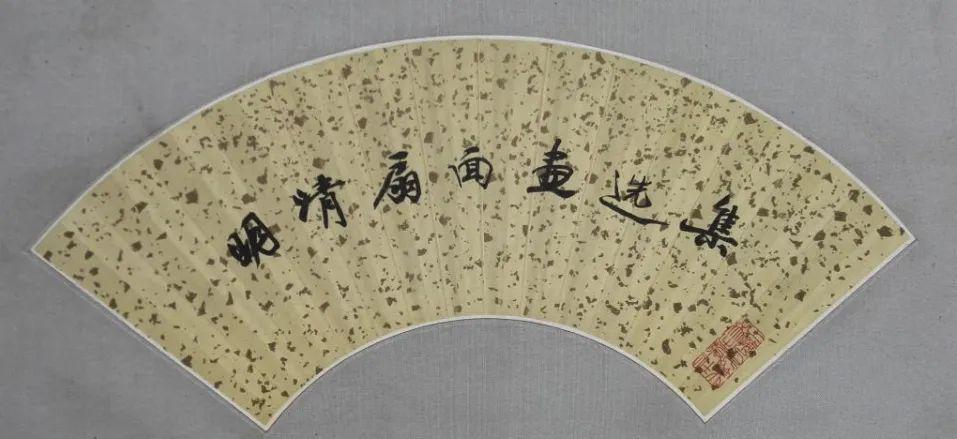 明清扇面画选集